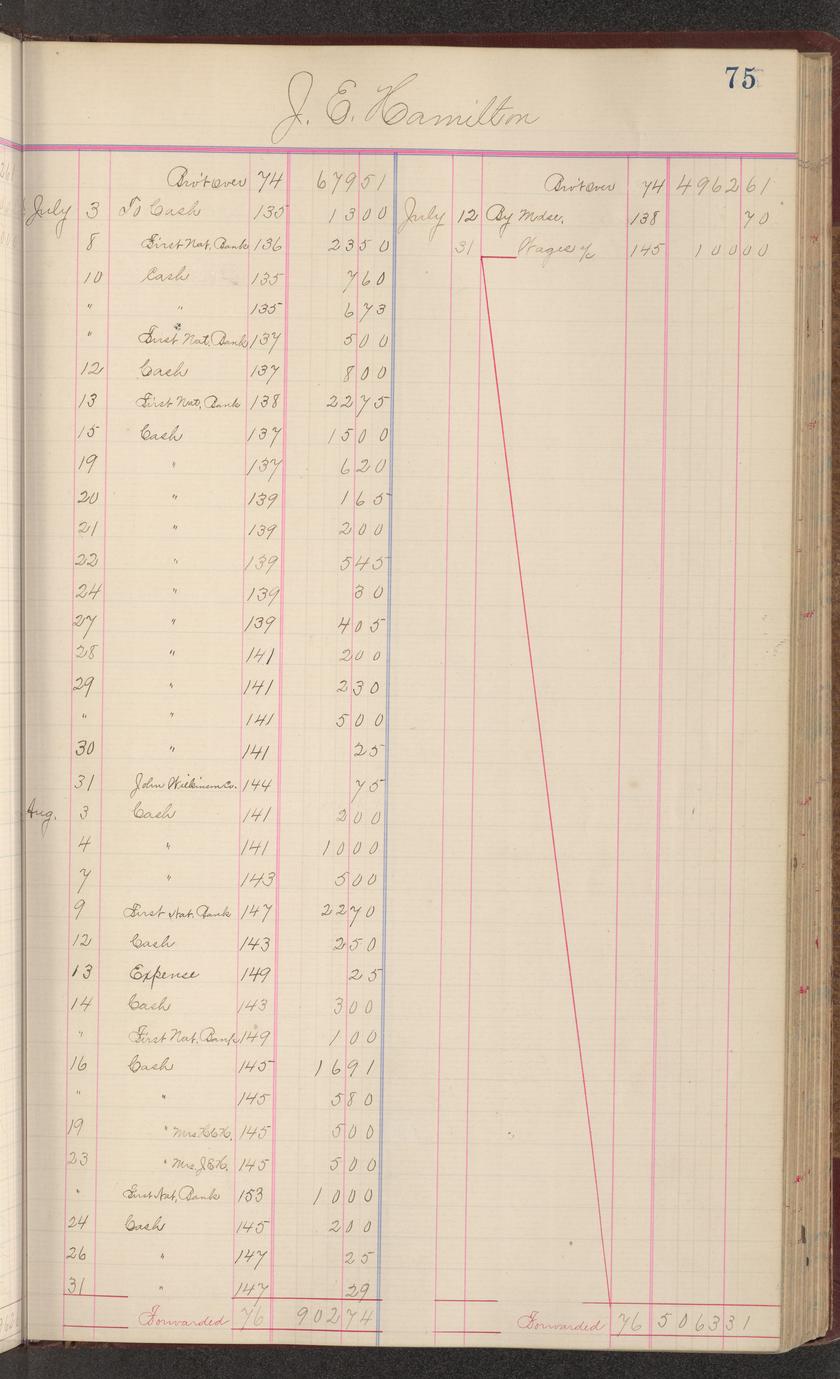 75
J. E. Hamilton
Bro't over 74 679 51
July 3 To Cash 135 13 00
8 First Nat. Bank 136 23 50
10 Cash 135 7 60
" " 135 6 73
" First Nat. Bank 137 5 00
12 Cash 137 8 00
13 First Nat. Bank 138 22 75
15 Cash 137 15 00
19 " 137 6 20
20 " 139 1 65
21 " 139 2 00
22 " 139 5 45
24 " 139 30
27 " 139 4 05
28 " 141 2 00
29 " 141 2 30
" " 141 5 00
30 " 141 25
31 John Wilkinson Co. 144 75
Aug. 3 Cash 141 2 00
4 " 141 10 00
7 " 143 5 00
9 First Nat. Bank 147 22 70
12 Cash 143 2 50
13 Expense 149 25
14 Cash 143 3 00
" First Nat. Bank 149 1 00
16 Cash 145 16 91
" " 145 5 80
19 " Mrs. 145 5 00
23 " Mrs. J.E.H. 145 5 00
" First Nat. Bank 153 10 00
24 Cash 145 2 00
26 " 147 25
31 " 147 29
Forwarded 76 902 74
Bro't over 74 4962 61
July 12 By Mdse. 138 70
31 Wages 145 100 00
Forwarded 76 5063 31